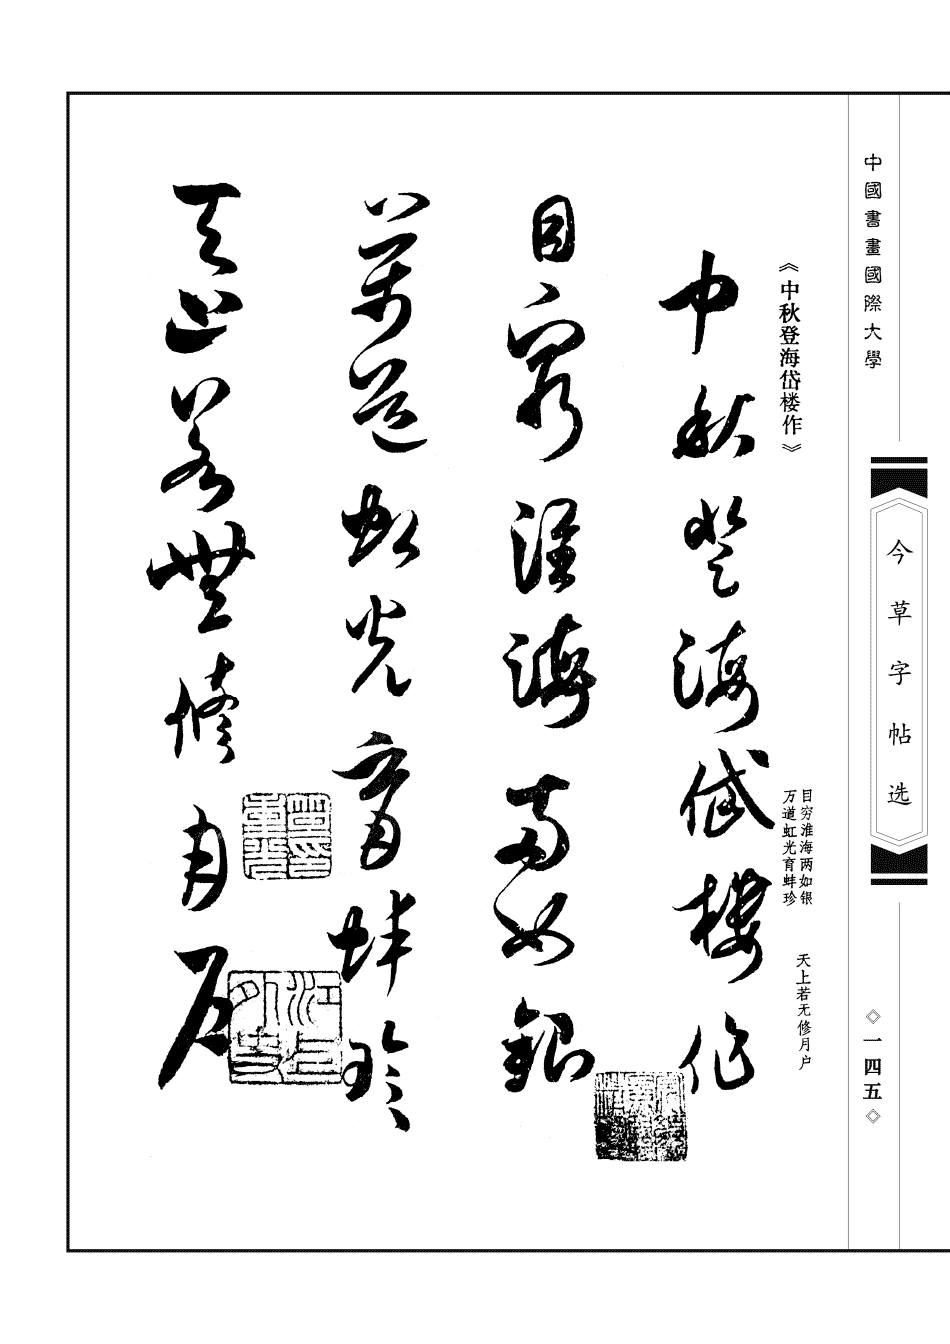 中國書畫國際大學
今草字帖选
◇一四五◇
《中秋登海岱楼作》
目穷淮海两如银
万道虹光育蚌珍
天上若无修月户
中秋登海岱樓作
目窮淮海兩如銀
萬道虹光育蚌珍
天上若無修月戶